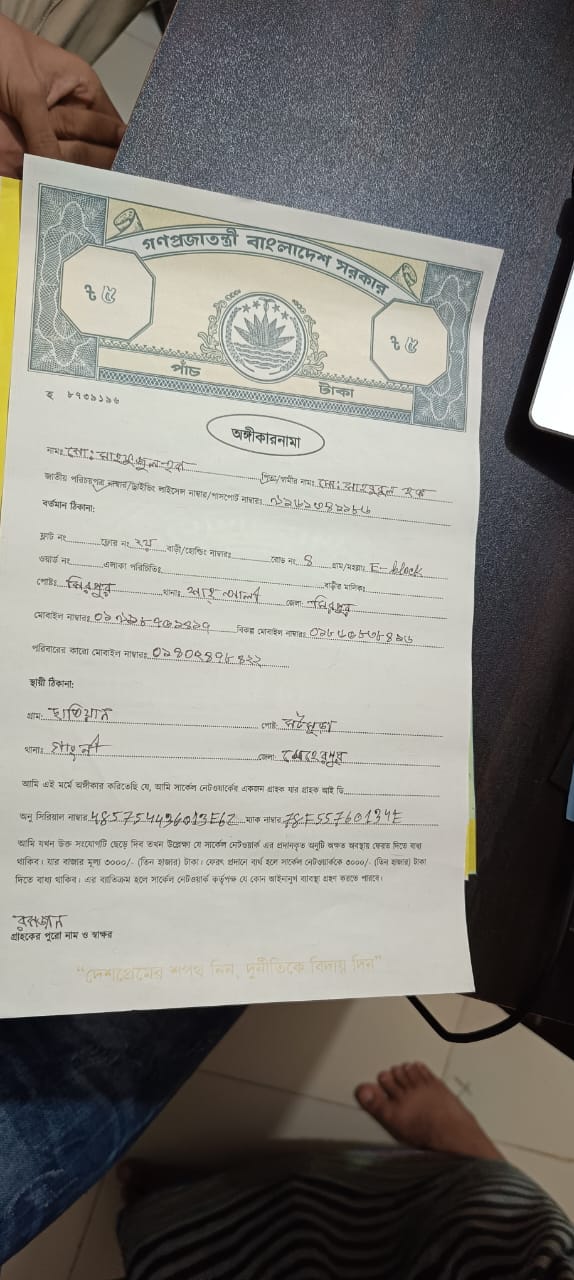 গণপ্রজাতন্ত্রী বাংলাদেশ সরকার
৳ ৫
৳ ৫
পাঁচ টাকা
হ ৮৭৩৯১৯৬
অঙ্গীকারনামা
নামঃ মোঃ পিতা/স্বামীর নামঃ মোঃ হক
জাতীয় পরিচয়পত্র নাম্বার/ড্রাইভিং লাইসেন্স নাম্বার/পাসপোর্ট নাম্বারঃ
বর্তমান ঠিকানা:
ফ্লাট নং ফ্লোর নং ২য় বাড়ী/হোল্ডিং নাম্বারঃ রোড নং 8 গ্রাম/মহল্লাঃ E-block
ওয়ার্ড নং এলাকা পরিচিতিঃ বাড়ীর মালিকঃ
পোষ্টঃ মিরপুর থানাঃ শাহ আলী জেলাঃ মিরপুর
মোবাইল নাম্বারঃ বিকল্প মোবাইল নাম্বারঃ
পরিবারের কারো মোবাইল নাম্বারঃ
স্থায়ী ঠিকানা:
গ্রামঃ পোষ্টঃ
থানাঃ গাংনী জেলাঃ মেহেরপুর
আমি এই মর্মে অঙ্গীকার করিতেছি যে, আমি সার্কেল নেটওয়ার্কের একজন গ্রাহক যার গ্রাহক আই ডি
অনু সিরিয়াল নাম্বার 485754436013E62 ম্যাক নাম্বার 78F55760134E
আমি যখন উক্ত সংযোগটি ছেড়ে দিব তখন উল্লেক্ষ্য যে সার্কেল নেটওয়ার্ক এর প্রদানকৃত অনুটি অক্ষত অবস্থায় ফেরত দিতে বাধ্য
থাকিব। যার বাজার মূল্য ৩০০০/- (তিন হাজার) টাকা। ফেরৎ প্রদানে ব্যর্থ হলে সার্কেল নেটওয়ার্ককে ৩০০০/- (তিন হাজার) টাকা
দিতে বাধ্য থাকিব। এর ব্যতিক্রম হলে সার্কেল নেটওয়ার্ক কর্তৃপক্ষ যে কোন আইনানুগ ব্যবস্থা গ্রহণ করতে পারবে।
গ্রাহকের পুরো নাম ও স্বাক্ষর
"দেশপ্রেমের শপথ নিন, দুর্নীতিকে বিদায় দিন"